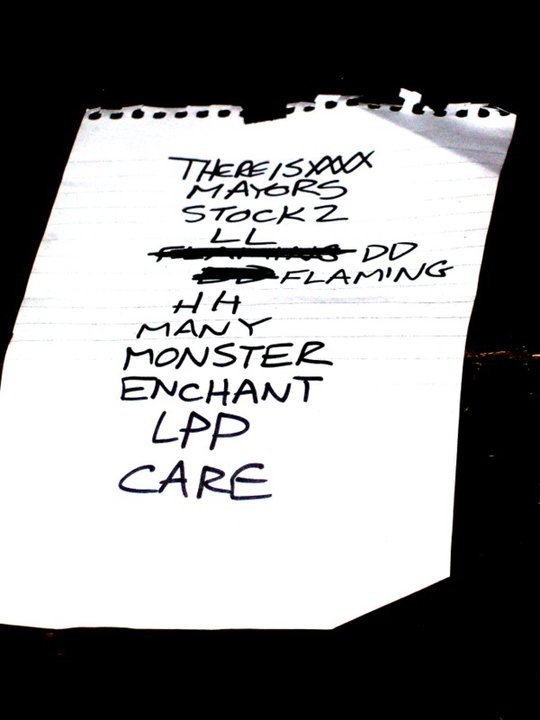 THERE IS XXX
MAYORS
STOCK 2
LL
FLAMING DD
DD FLAMING
HH
MANY
MONSTER
ENCHANT
LPP
CARE